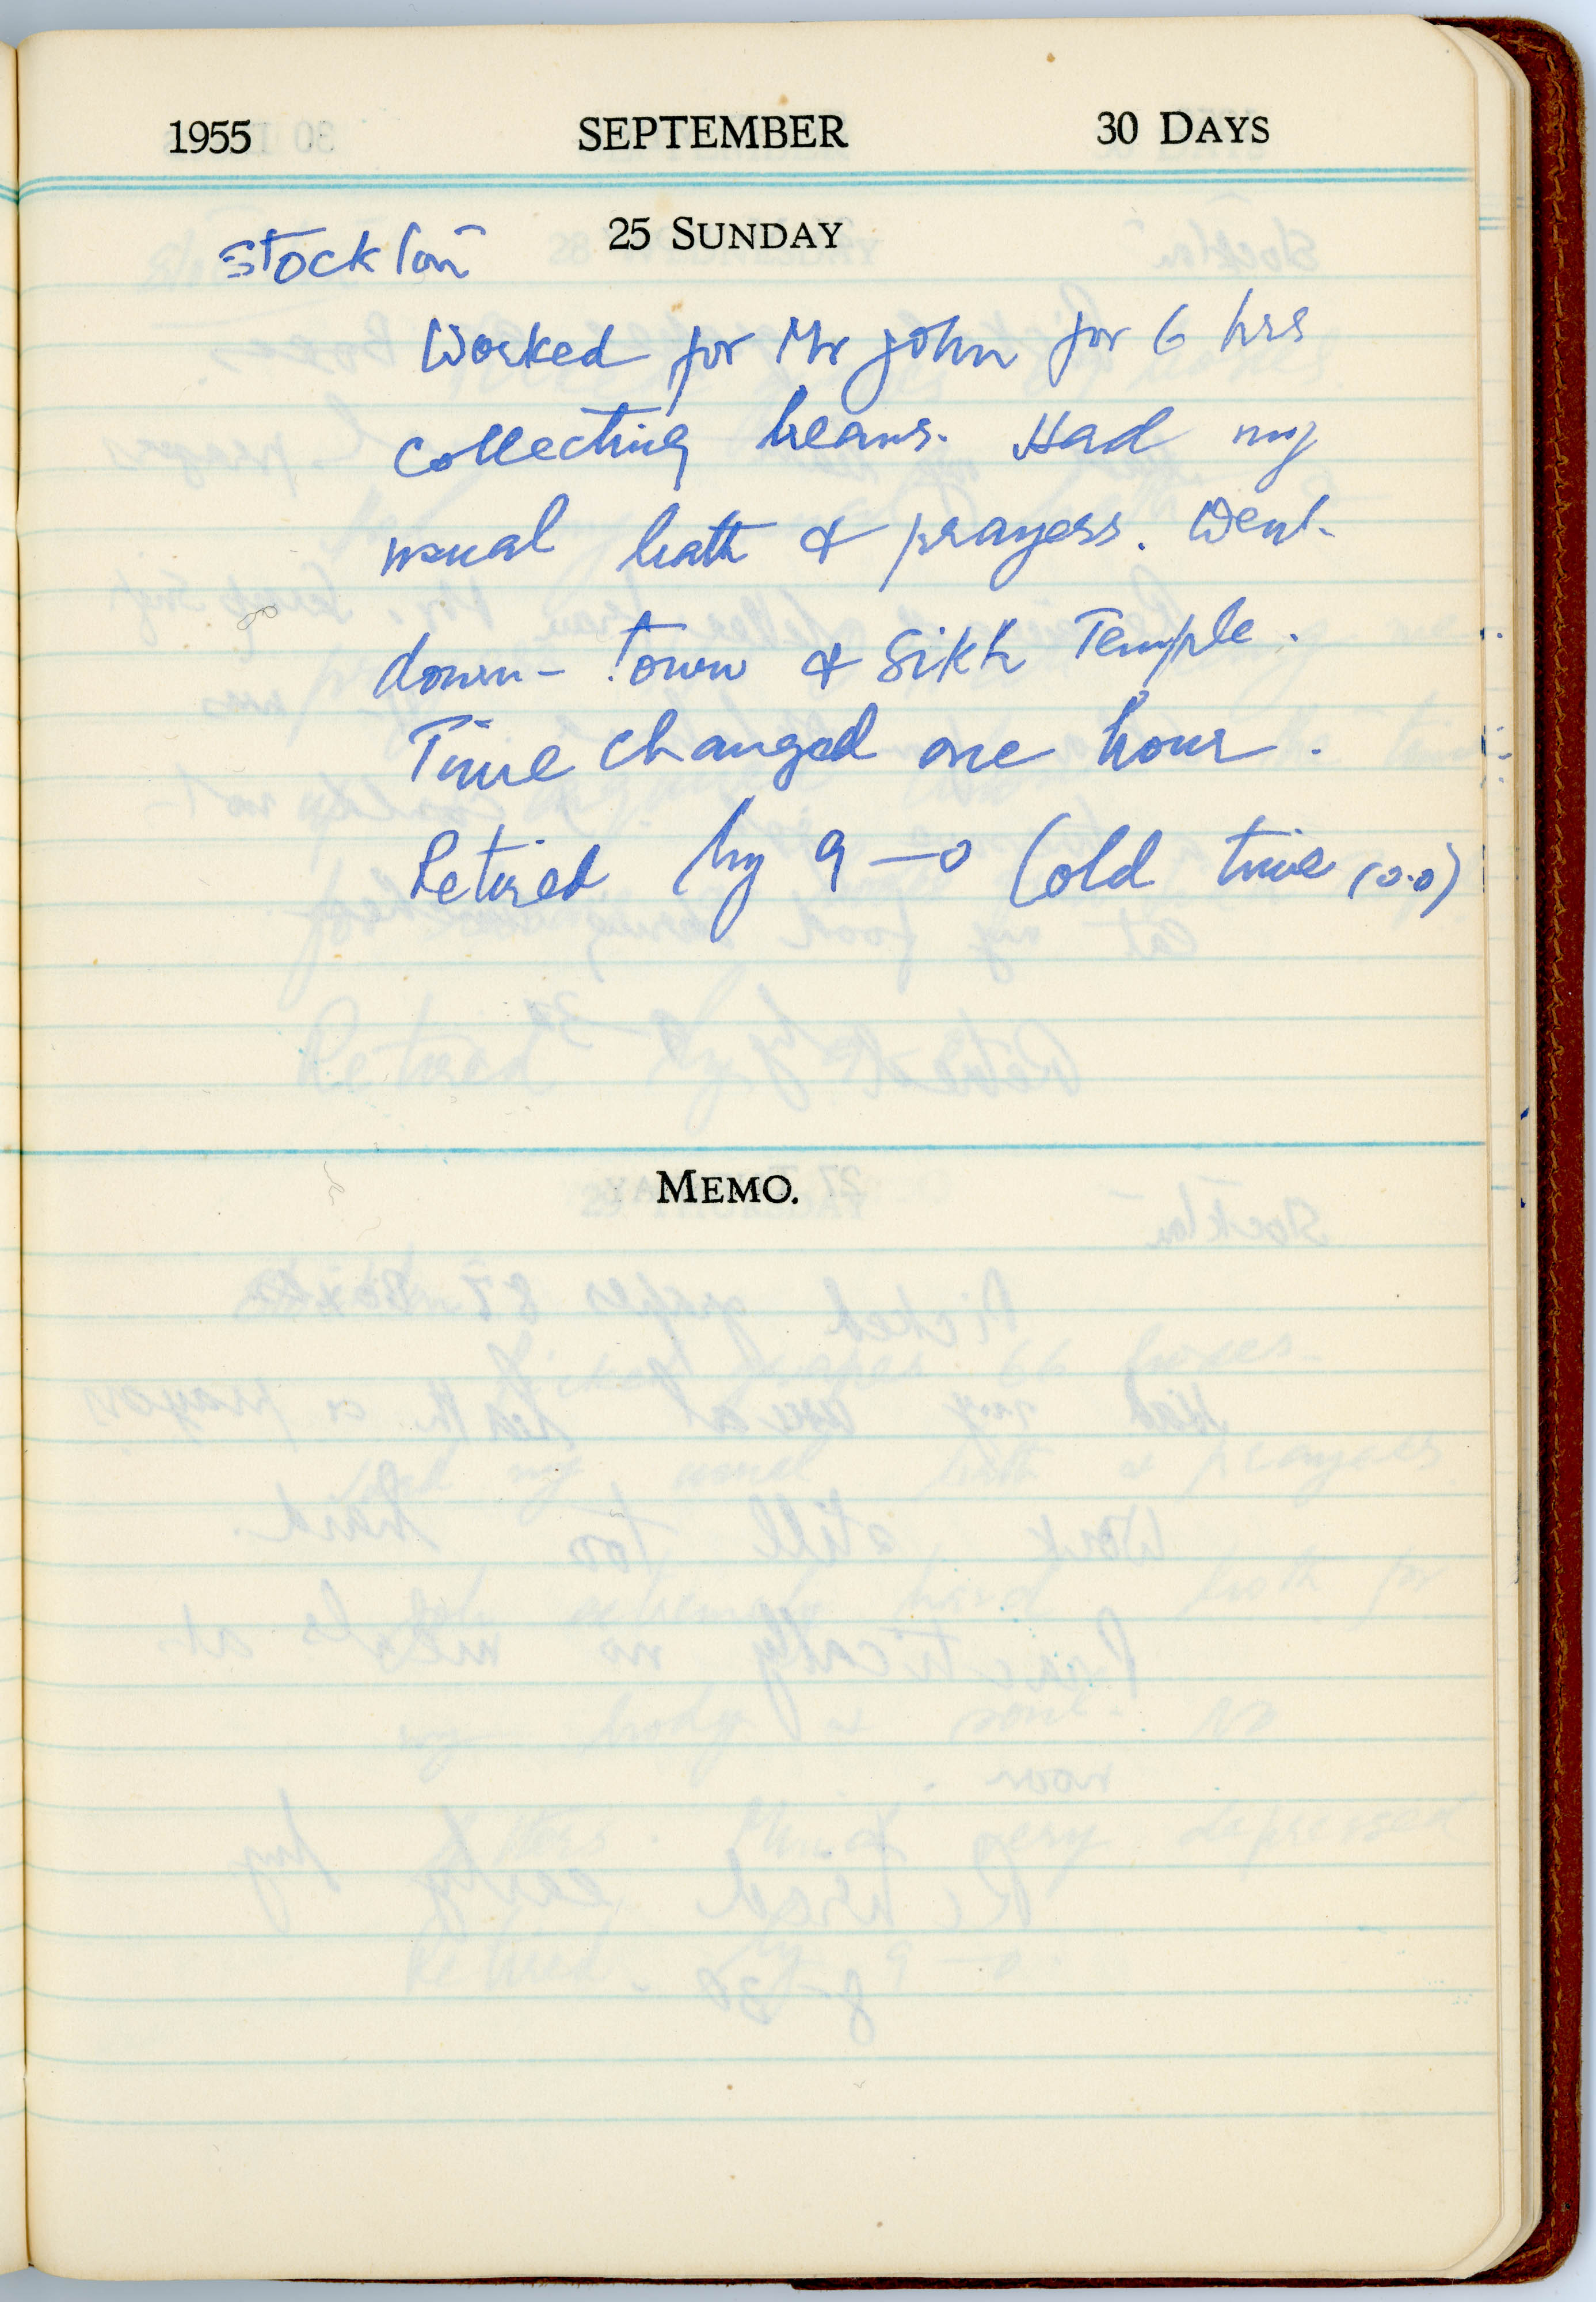 1955 SEPTEMBER 30 DAYS
25 SUNDAY
Stockton
Worked for Mr John for 6 hrs
collecting beans. Had my
usual bath & prayers. Went
down-town & Sikh Temple.
Time changed one hour.
Retired by 9-0 (old time
MEMO.